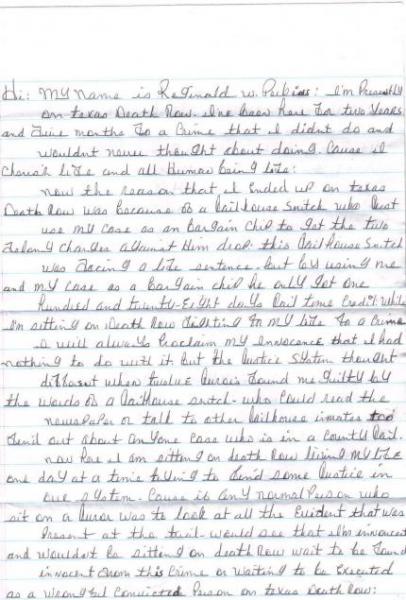 Hi: My name is Reginald W. Perkins: I'm Presently
on texas Death Row. I've been here For two Years
and Five months Fo a Crime that I didnt do and
wouldnt never thought about doing. Cause I
Cherish life and all Human being life:
now the reason that I Ended up on texas
Death Row was because of a Jailhouse Snitch who Just
use my case as an Bargain Chip to get the two
Felony charges against Him drop. this Jailhouse Snitch
was Facing a life sentence. but by using me
and my case as a bargain chip he only got one
Hundred and twenty-Eight days Jail time Credit. While
I'm sitting on Death Row Fighting Fo my life Fo a Crime
I will always Proclaim my Innocence that I had
nothing to do with it. but the Justice System thought
different when twelve Jurors Found me guilty by
the words of a Jailhouse snitch. who could read the
newspaper or talk to other Jailhouse inmates too
Find out about anyone case who is in a County Jail.
now here I am sitting on death Row living my life
one day at a time trying to Find some Justice in
our system. Cause if any normal Person who
sit on a Juror was to look at all the Evident that was
Present at the trail. would see that I'm innocent
and wouldn't be sitting on death Row wait to be Found
innocent From this Crime or waiting to be Executed
as a wrongful Convicted Person on texas Death Row: